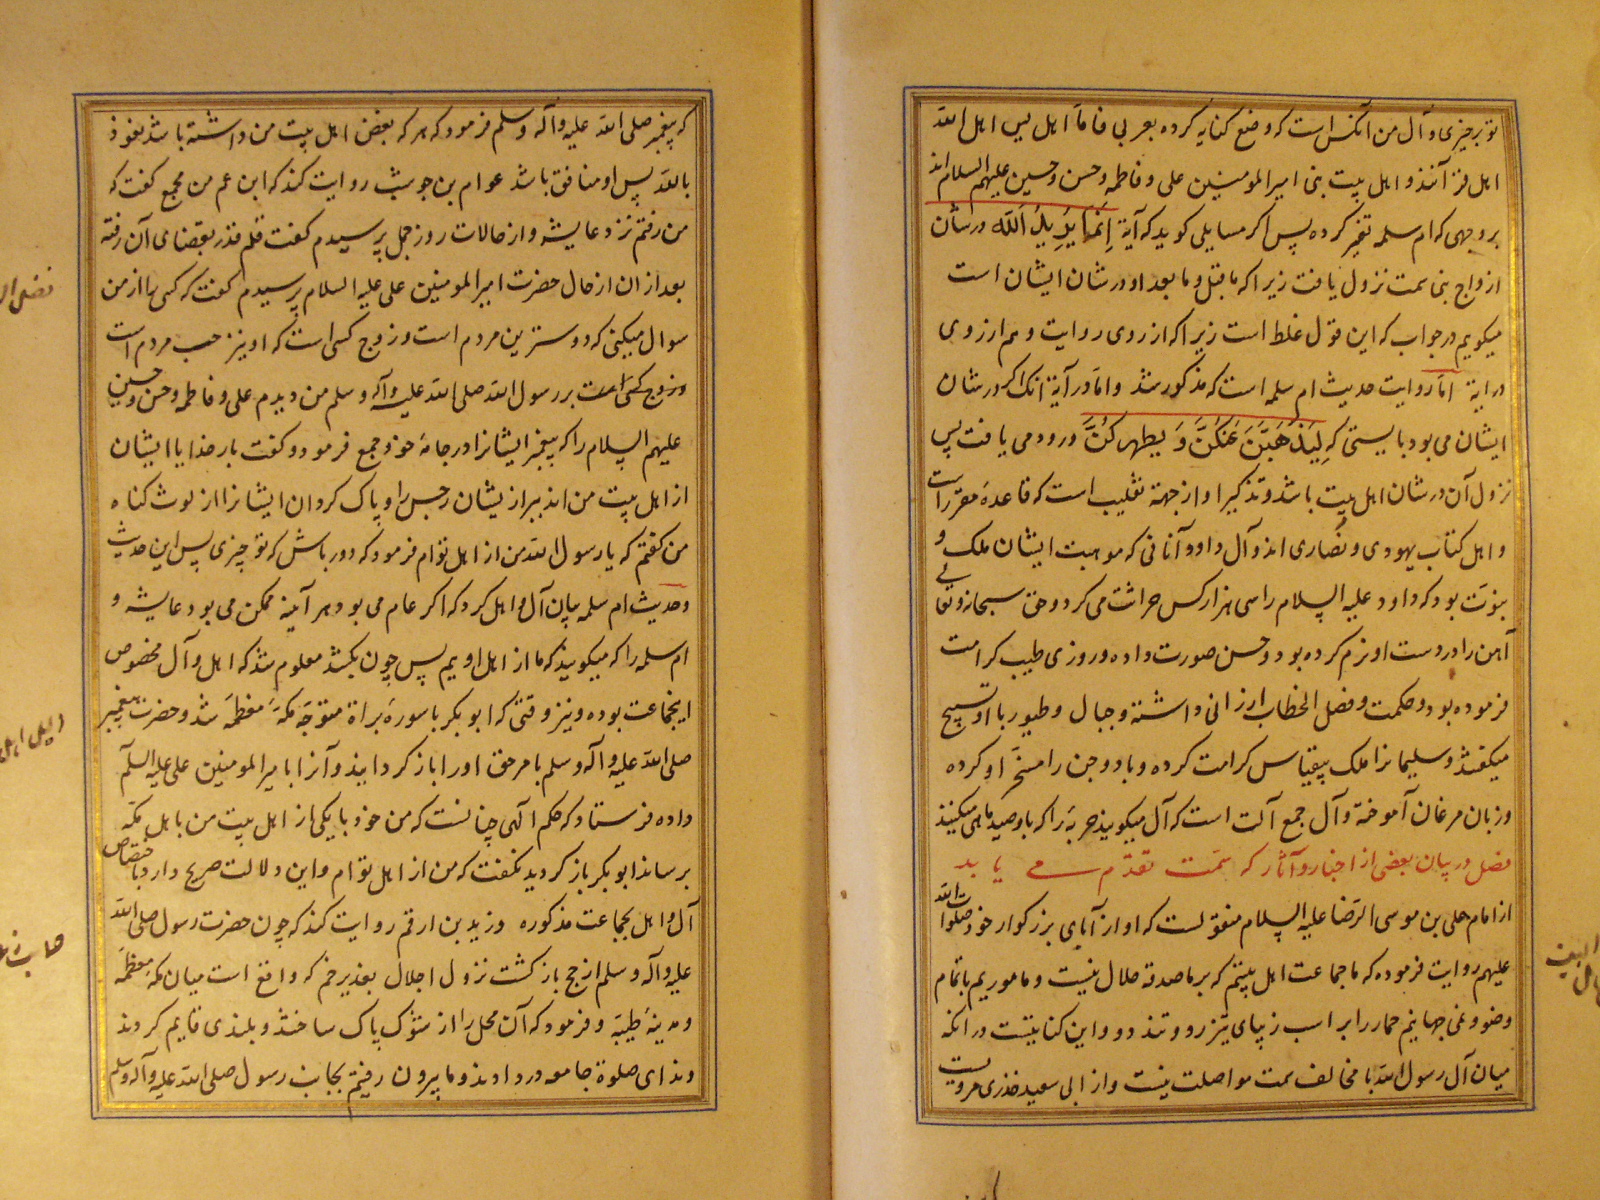 تو بر چیزی و آل من آنکس است که وضع کنایه کرده بعربی فاما اهل پس اهل الله
اهل قرآنند و اهل بیت نبی امیرالمومنین علی و فاطمه و حسن و حسین علیهم السلام اند
بر وجهی که ام سلمه تقریر کرده پس اگر مسایلی کوید که آیة اِنَّمَا یُرِیدُ اَللَّه در شان
ازواج نبی سمت نزول یافت زیرا که ما قبل و ما بعد او در شان ایشان است
میکویم در جواب که این قول غلط است زیرا که از روی روایت و هم از روی
درایة اما روایت حدیث ام سلمه است که مذکور شد و اما درآیة انک اکر در شان
ایشان می بود بایستی که لِیَذْهَبَنَّ عَنْکُنَّ وَ یطهرکُنَّ ورود می یافت پس
نزول آن در شان اهل بیت باشد و تذکیر او از جهة تغلیب است که قاعدهٔ مقرر است
و اهل کتاب یهودی و نصاری اند و آل داود آنانی که موهبت ایشان ملک و
نبوت بود که داود علیه السلام را سی هزار کس حراست می کرد و حق سبحانه و تعالی
آهن را در دست او نرم کرده بود و حسن صورت داده و روزی طیب کرامت
فرموده بود و حکمت و فصل الخطاب ارزانی داشته و جبال و طیور با او تسبیح
میکفتند و سلیمانرا ملک بیقیاس کرامت کرده و باد و جن را مسخر او کرده
و زبان مرغان آموخته و آل جمع آلت است که آل میکویند حربه را که باو صید ماهی میکنند
فصل در بیان بعضی از اخبار و آثار که سمت تقدم می یابد
از امام علی بن موسی الرضا علیه السلام منقولست که او از آبای بزرکوار خود صلوات الله
علیهم روایت فرموده که ما جماعت اهل بیتیم که بر ما صدقه حلال نیست و ماموریم باتمام
وضو و نمی جهانیم حمار را بر اسب ز پیای تیز رو و تند دو و این کنایتست در انکه
میان آل رسول الله با مخالف سمت مواصلت نیست و از ابی سعید خذری مرویست
که پیغمبر صلی الله علیه و آله و سلم فرمود که هر که بغض اهل بیت من داشته باشد نعوذ
بالله پس او منافق باشد عوام بن حوشب روایت کند که ابن عم من مجمع کفت که
من رفتم نزد عایشه و از حالات روز جمل پرسیدم کفت قلم قدر بقضای آن رفته
بعد از ان از حال حضرت امیرالمومنین علی علیه السلام پرسیدم کفت که کسی را از من
سوال میکنی که دوسترین مردم است و زوج کسی است که او نیز حب مردم است
و زوج کسی است بر رسول الله صلی الله علیه و آله و سلم من دیدم علی و فاطمه و حسن و حسین
علیهم السلام را که پیغمبر ایشانرا در جامهٔ خود جمع فرمود و کفت بار خدایا ایشان
از اهل بیت من اند ببر از یشان رجس را و پاک کردان ایشانرا از لوث کناه
من کفتم که یا رسول الله من از اهل توام فرمود که دور باش که تو چیزی پس این حدیث
و حدیث ام سلمه بیان آل و اهل کرد که اکر عام می بود هر آینه ممکن می بود عایشه و
ام سلمه را که میکویند که ما از اهل اوییم پس چون بکسد معلوم شد که اهل و آل مخصوص
اینجماعت بوده و نیز وقتی که ابوبکر با سورهٔ براة متوجه مکهٔ معظمه شد و حضرت پیغمبر
صلی الله علیه و آله و سلم بامر حق او را باز کردانید و آنرا بامیرالمومنین علی علیه السلم
داده فرستاد که حکم الهی چنانست که من خود با یکی از اهل بیت من باهل مکه
برساند ابوبکر باز کردید نکفت که من از اهل توام و این دلالت صریح دارد باختصاص
آل و اهل بجماعت مذکوره و زید بن ارقم روایت کند که چون حضرت رسول صلی الله
علیه و آله و سلم از حج باز کشت نزول اجلال بغدیر خم که واقع است میان مکهٔ معظمه
و مدینهٔ طیبه و فرمود که آن محل را از شوک پاک ساختند و بلندی قایم کردند
و ندای صلوة جامعه در دادند و ما بیرون رفتیم بجانب رسول صلی الله علیه و آله و سلم